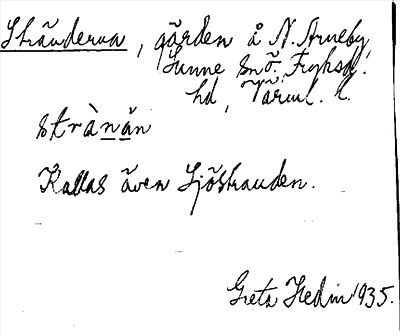 Stränderna, gården å N. Arneby,
Sunne sn ö. Fryksd.
hd, Värml. l.
strànän
Kallas även Sjöstranden.
Greta Hedin 1935.